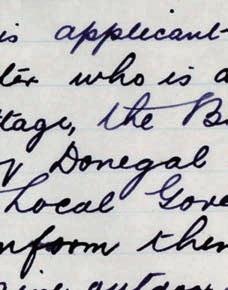 is applicant
ter who is a
ttage, the B
y Donegal
Local Gove
nform them
outdoor